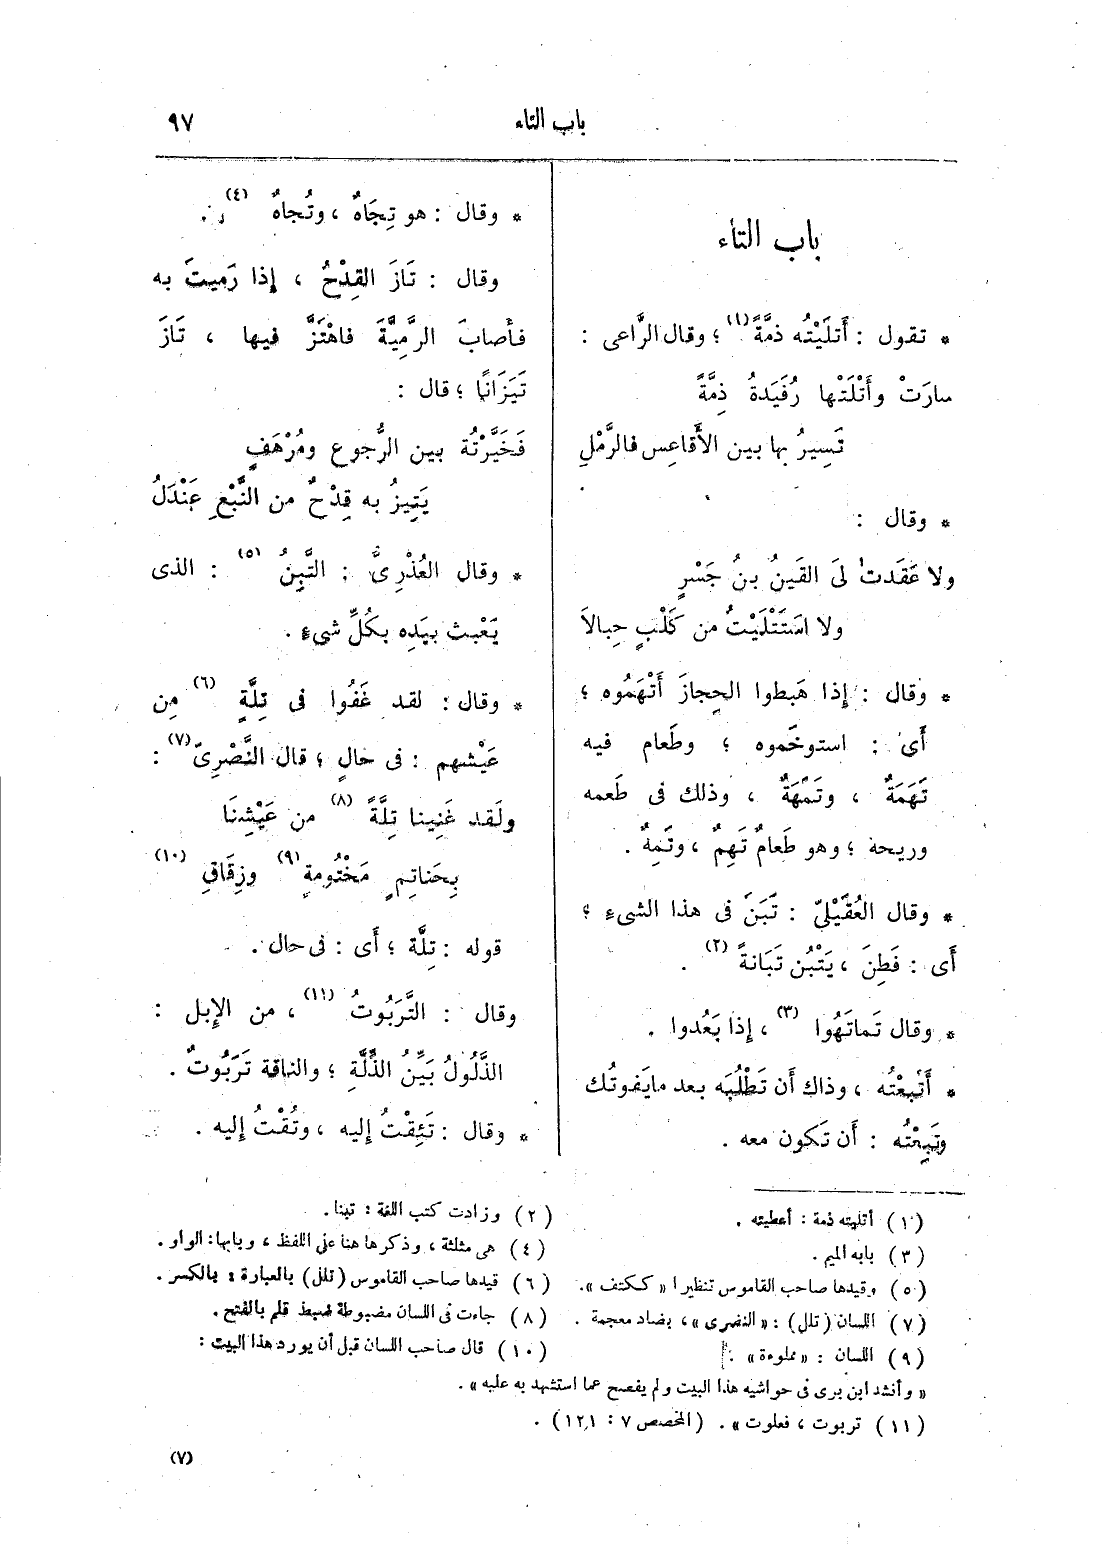 باب التاء ٩٧
باب التاء
* تقول : أَتلَيْتُه ذمَّةً (١) ؛ وقال الرَّاعى :
سارَتْ وأَتْلَتْها رُفَيَدةُ ذِمَّةً
تَسِيرُ بها بين الأَقاعِس فالرَّمْلِ
* وقال :
ولا عَقَدتْ لىَ القَينُ بنُ جَسْرٍ
ولا اسْتَتْلَيْتُ من كَلْبٍ حِبالاَ
* وقال : إِذا هَبطوا الحِجازَ أَتْهَمُوه ؛
أَى : استوخَموه ؛ وطَعام فيه
تَهَمَةٌ ، وتَمَهَةٌ ، وذلك فى طَعمه
وريحه ؛ وهو طَعامٌ تَهِمٌ ، وتَمِهٌ .
* وقال العُقَيْلىّ : تَبَنَ فى هذا الشىءِ ؛
أَى : فَطِنَ ، يَتْبُن تَبَانةً (٢) .
* وقال تَماتَهُوا (٣) ، إِذا بَعُدوا .
* أَتْبعْتُه ، وذاك أَن تَطْلُبَه بعد مايَفوتُك
وتَبِعْتُه : أَن تَكون معه .
* وقال : هو تِجَاهٌ ، وتُجاهٌ (٤) .
وقال : تَازَ القِدْحُ ، إِذا رَميتَ به
فأَصابَ الرَّمِيَّةَ فاهْتَزَّ فيها ، تَازَ
تَيَزَانًا ؛ قال :
فَخَيَّرْتُهَ بين الرُّجوع ومُرْهَفٍ
يَتِيزُ به قِدْحٌ من النَّبْعِ عَنْدَلُ
* وقال العُذْرِىُّ : التَّبِنُ (٥) : الذى
يَعْبث بيَدِه بكُلِّ شىءٍ .
* وقال : لقد غَفُوا فى تِلَّةٍ (٦) مِن
عَيْشهم : فى حالٍ ؛ قال النَّصْرِىّ (٧) :
ولَقد غَنِينا تِلَّةً (٨) من عَيْشِنَا
بِحَناتِمٍ مَخْتُومةٍ (٩) وزِقَاقِ (١٠)
قوله : تِلَّة ؛ أَى : فى حال .
وقال : التَّرَبُوتُ (١١) ، من الإِبل :
الذَّلُولُ بَيِّنُ الذِّلَّةِ ؛ والناقة تَرَبُوتٌ .
* وقال : تَئِقْتُ إِليه ، وتُقْتُ إِليه .
(١) أتليته ذمة : أعطيته .
(٢) وزادت كتب اللغة : تبنا .
(٣) بابه الميم .
(٤) هى مثلثة ، وذكرها هنا على اللفظ ، وبابها : الواو .
(٥) وقيدها صاحب القاموس تنظيرا « ككتف » .
(٦) قيدها صاحب القاموس (تلل) بالعبارة : بالكسر .
(٧) اللسان (تلل) : « النضرى » ، بضاد معجمة .
(٨) جاءت فى اللسان مضبوطة ضبط قلم بالفتح .
(٩) اللسان : « مملوءة » .
(١٠) قال صاحب اللسان قبل أن يورد هذا البيت :
« وأنشد ابن برى فى حواشيه هذا البيت ولم يفصح عما استشهد به عليه » .
(١١) تربوت ، فعلوت » . (المخصص ٧ : ١٢١) .
(٧)